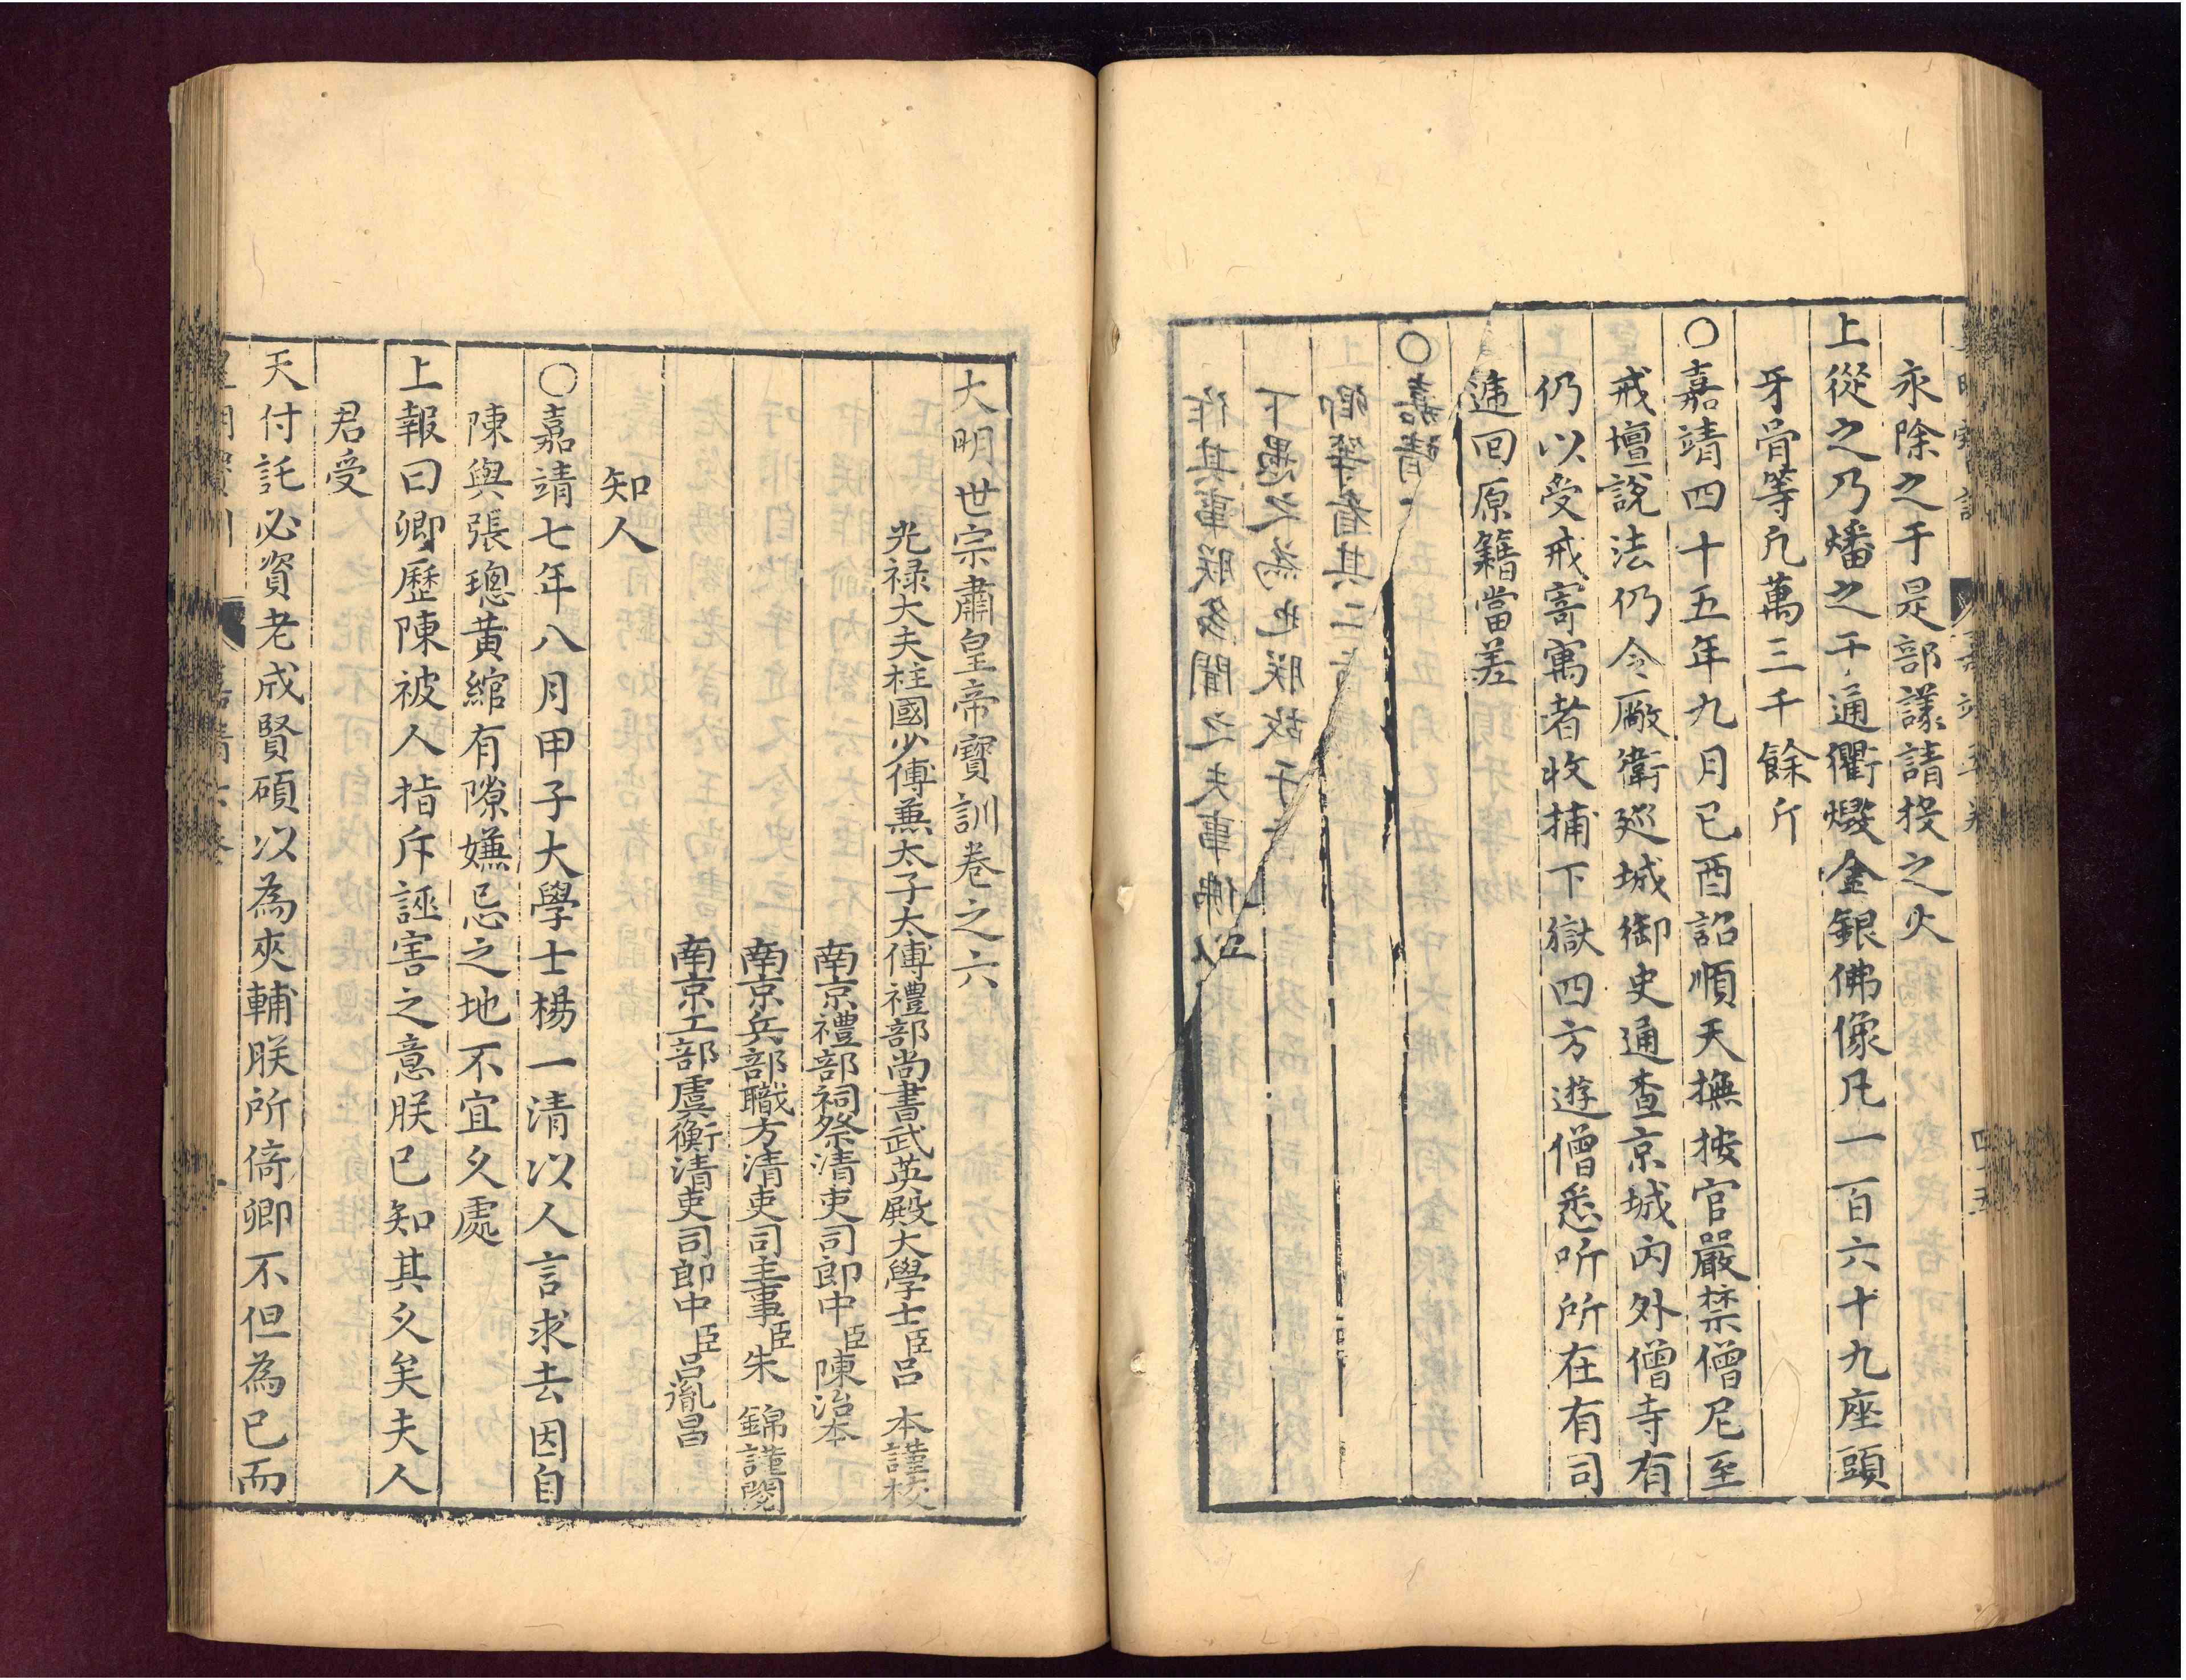 永除之于是部議請投之火
上從之乃燔之于通衢燬金銀佛像凡一百六十九座頭
牙骨等凡萬三千餘斤
○嘉靖四十五年九月己酉詔順天撫按官嚴禁僧尼至
戒壇說法仍令廠衛廵城御史通查京城內外僧寺有
仍以受戒寄寓者收捕下獄四方遊僧悉听所在有司
遞回原籍當差
大明世宗肅皇帝寶訓卷之六
光禄大夫柱國少傅兼太子太傅禮部尚書武英殿大學士臣吕 本謹校
南京禮部祠祭清吏司郎中臣陳治本
南京兵部職方清吏司主事臣朱 錦謹閱
南京工部虞衡清吏司郎中臣吕胤昌
知人
○嘉靖七年八月甲子大學士楊一清以人言求去因自
陳與張璁黄綰有隙嫌忌之地不宜久處
上報曰卿歷陳被人指斥誣害之意朕已知其久矣夫人
君受
天付託必資老成賢碩以為夾輔朕所倚卿不但為已而